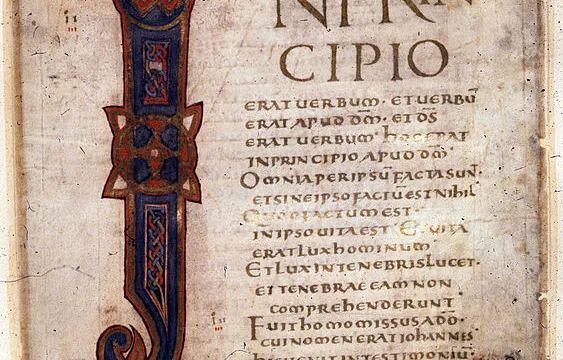 IN PRIN
CIPIO
ERAT UERBUM · ET UERBŪ
ERAT APUD D̄M · ET D̄S
ERAT UERBUM · HOC ERAT
IN PRINCIPIO APUD D̄M ·
OMNIA PER IPSŪ FACTA SUN ·
ET SINE IPSO FACTŪ EST NIHIL
QUOD FACTUM EST ·
IN IPSO UITA EST · ET UITA
ERAT LUX HOMINUM
ET LUX IN TENEBRIS LUCET ·
ET TENEBRAE EAM NON
COMPREHENDERUNT
FUIT HOMO MISSUS A D̄O ·
CUI NOMEN ERAT IOHANNES
HIC UENIT IN TESTIMONIŪ